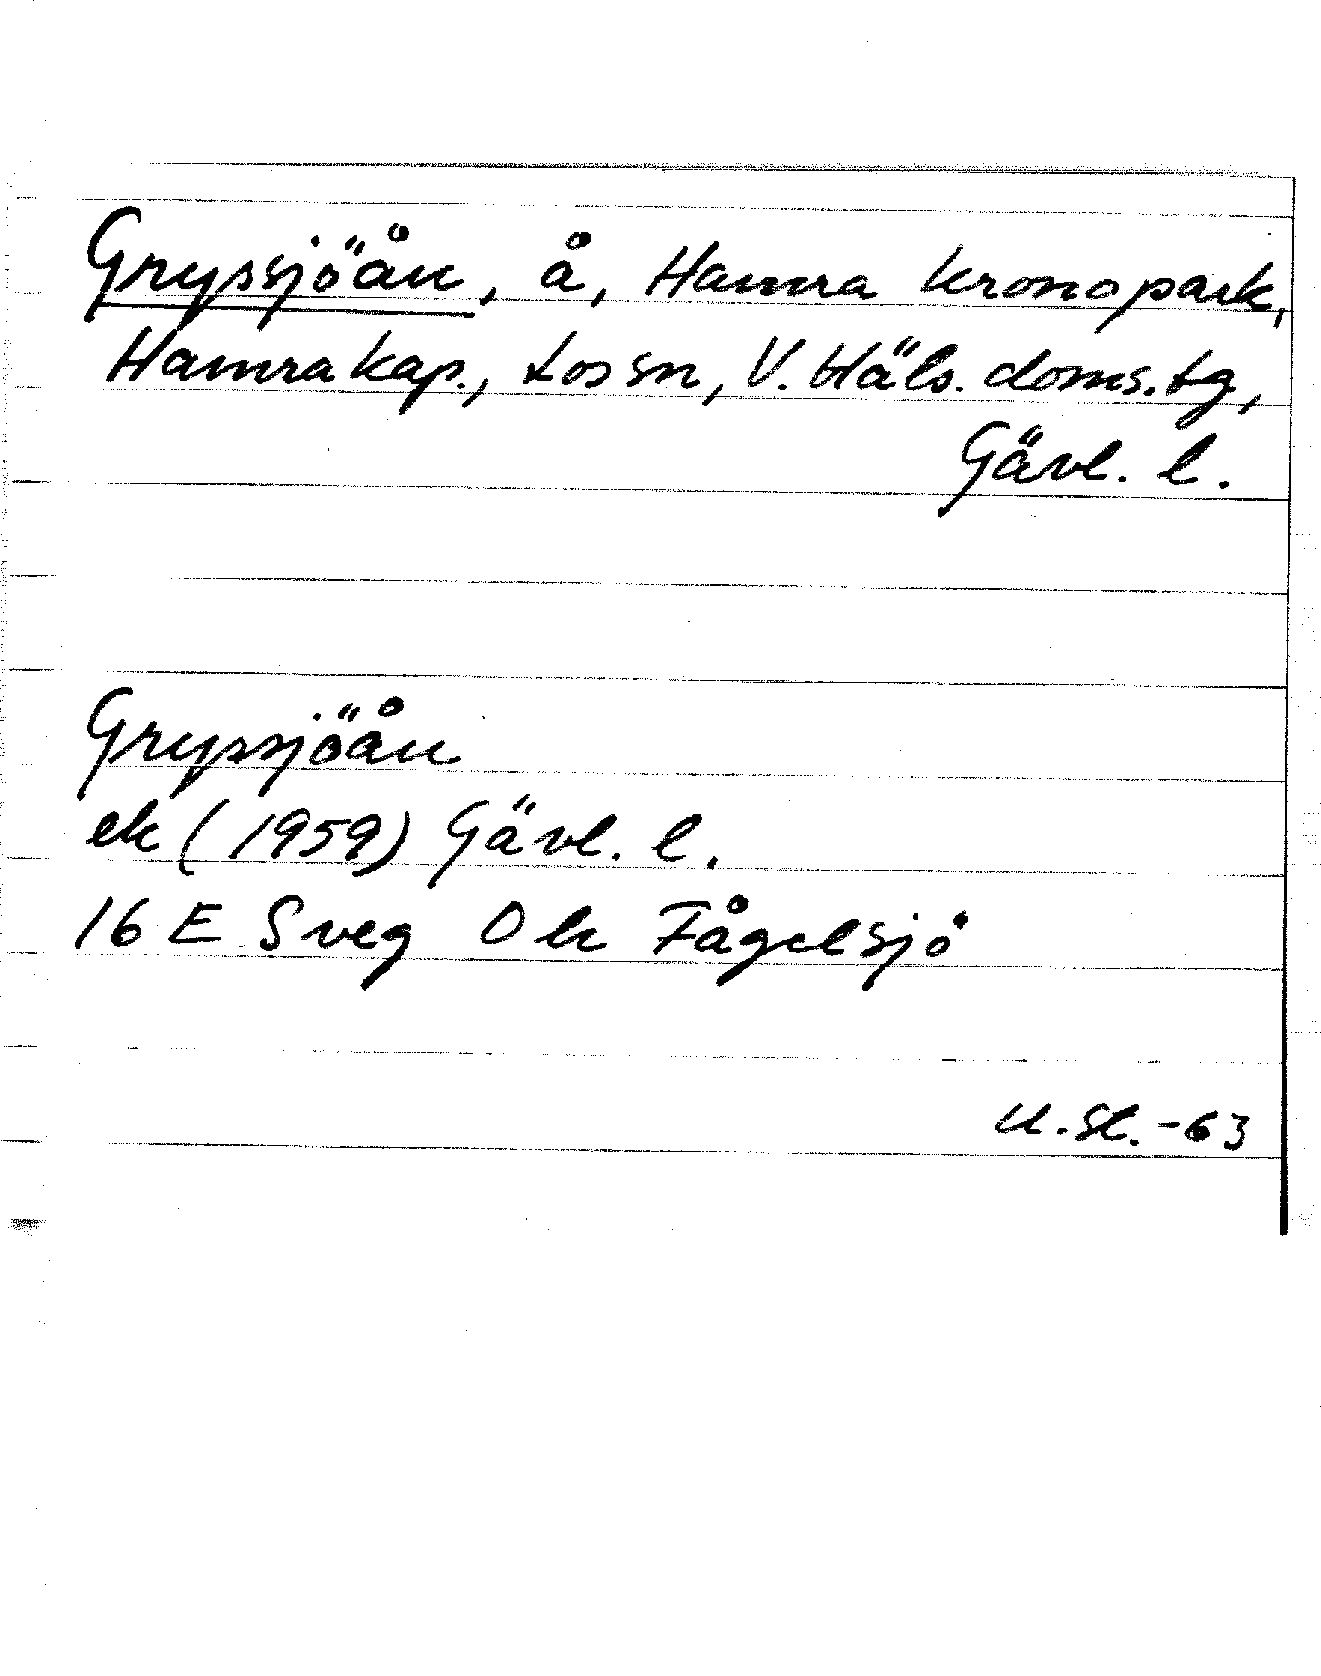 Gryssjöån, å, Hamra kronopark,
Hamra kap., Los sn, V. Häls. doms.tg,
Gävl. l.
Gryssjöån
ek (1959) Gävl. l.
16 E Sveg Ok Fågelsjö
U.Sl.-63